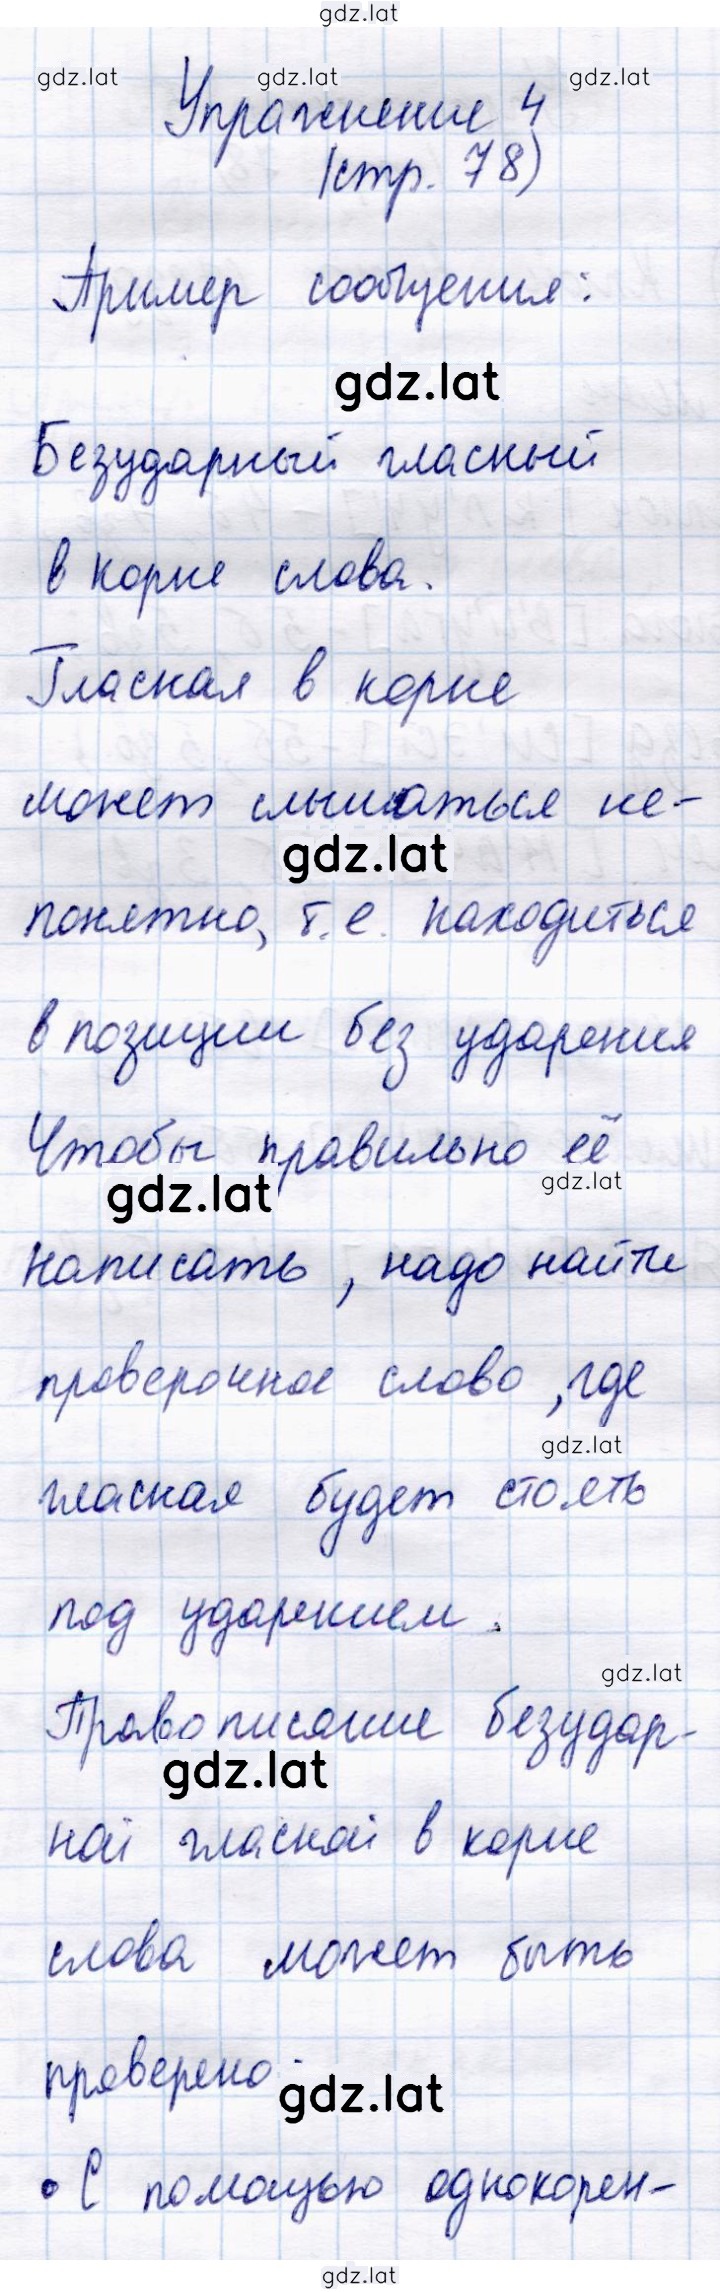 gdz.lat
gdz.lat gdz.lat gdz.lat
Упражнение 4
(стр. 78)
Пример сообщения:
gdz.lat
Безударный гласный
в корне слова.
Гласная в корне
может слышаться не-
gdz.lat
понятно, т.е. находиться
в позиции без ударения
Чтобы правильно её
gdz.lat gdz.lat
написать, надо найти
проверочное слово, где
gdz.lat
гласная будет стоять
под ударением.
gdz.lat
Правописание безудар-
gdz.lat
ной гласной в корне
слова может быть
проверено.
gdz.lat
• С помощью однокорен-
gdz.lat